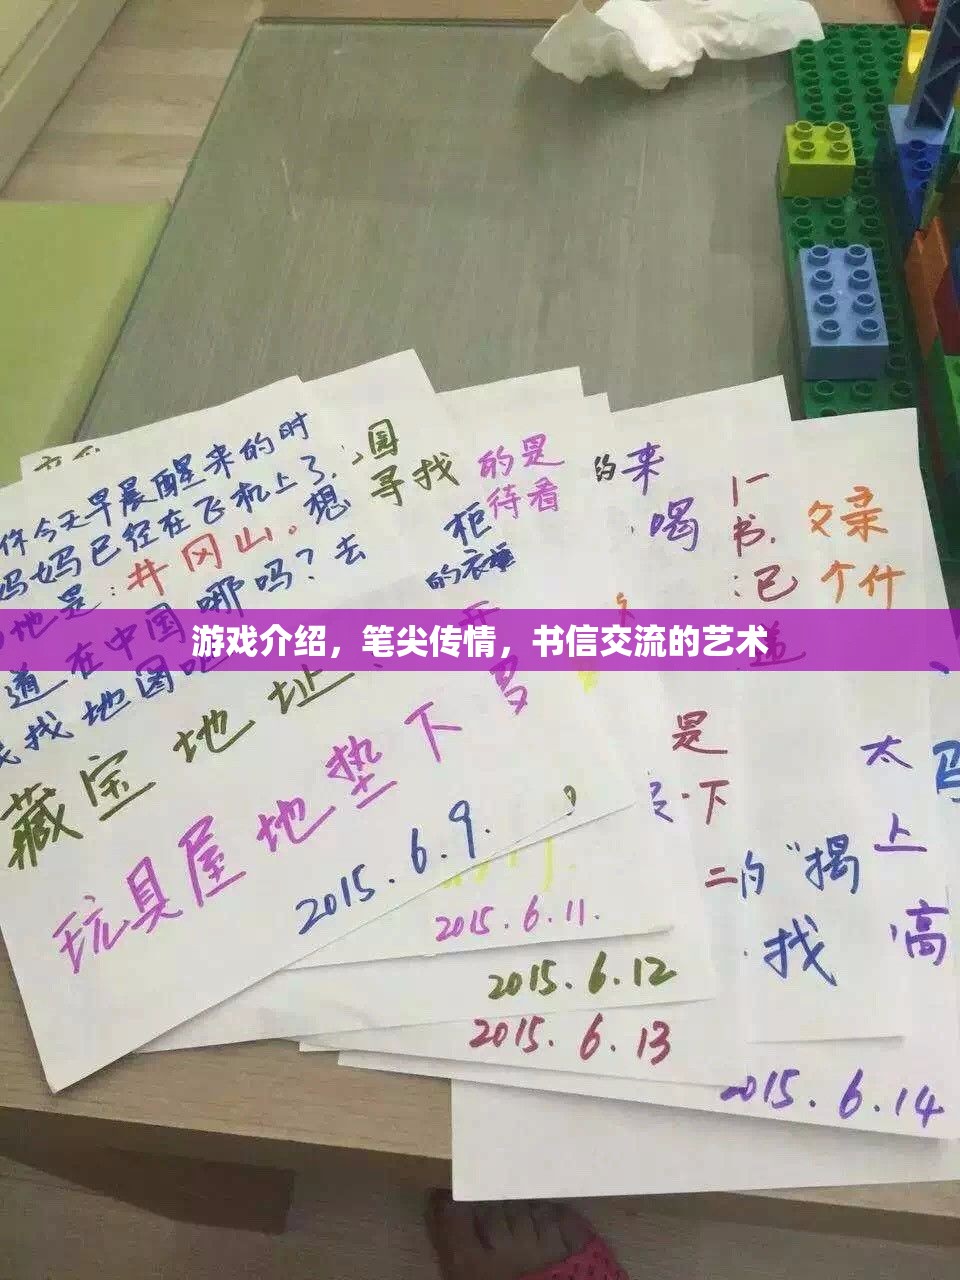 你今天早晨醒来的时
妈妈已经在飞机上了.
地是:井冈山。想
道在中国哪吗?去
找找地图吧
藏宝地址:
玩具屋地垫下
2015.6.9.
国
寻找
的是
待看
柜
的衣
开
2015.6.11.
2015.6.12
来
喝
是
下
2015.6.13
书.
已
二
的"揭
找
个什
太
上
高
2015.6.14
游戏介绍，笔尖传情，书信交流的艺术